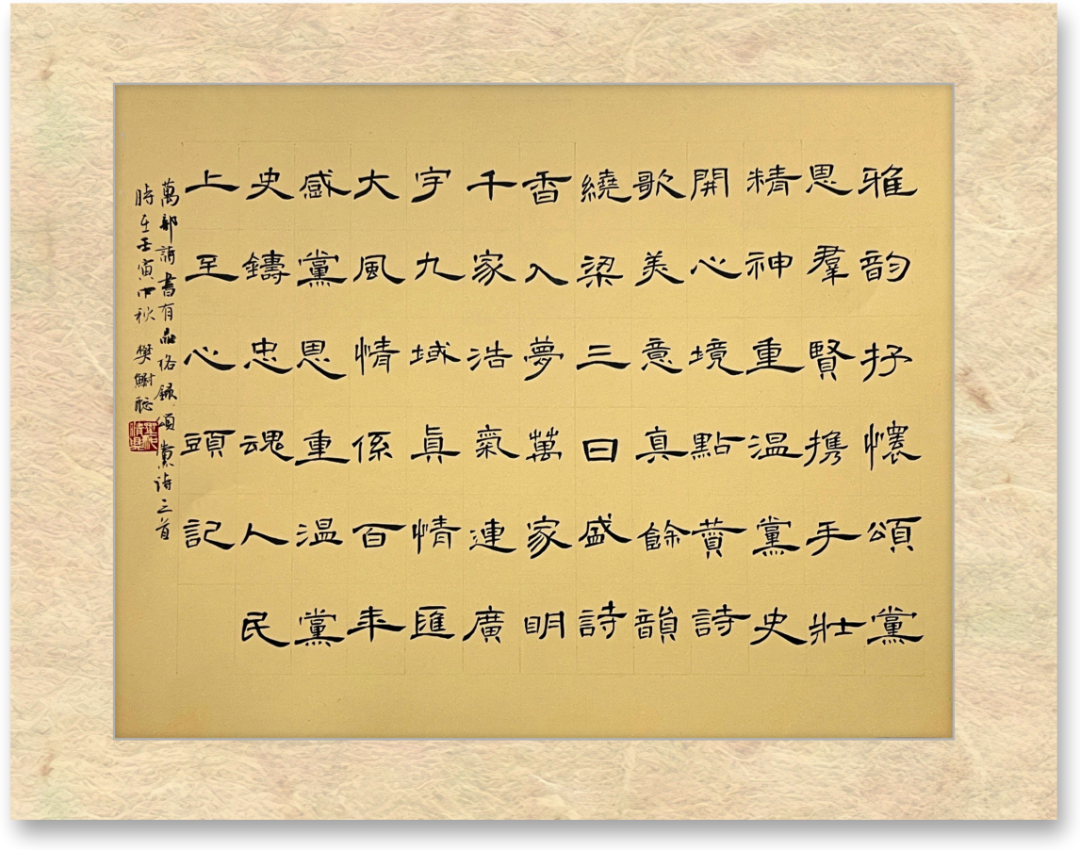 雅韵抒懷頌黨
恩羣賢携手壯
精神重温黨史
開心境點贊詩
歌美意真餘韻
繞梁三日盛詩
香入夢萬家明
千家浩氣連廣
宇九域真情匯
大風情係百年
感黨恩重温黨
史鑄忠魂人民
上至心頭記
萬部詩書有品格錄頌黨詩三首
時在壬寅中秋 樊